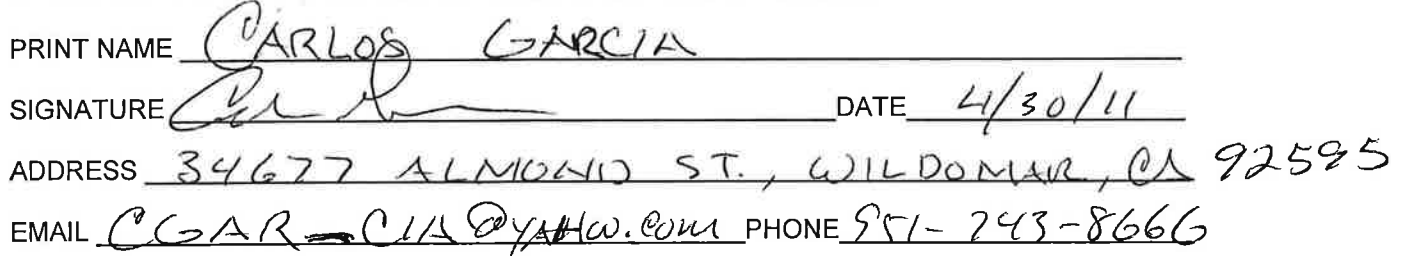 PRINT NAME CARLOS GARCIA
SIGNATURE DATE 4/30/11
ADDRESS 34677 ALMOND ST., WILDOMAR, CA 92595
EMAIL CGAR-CIA@YAHOO.COM PHONE 951-743-8666